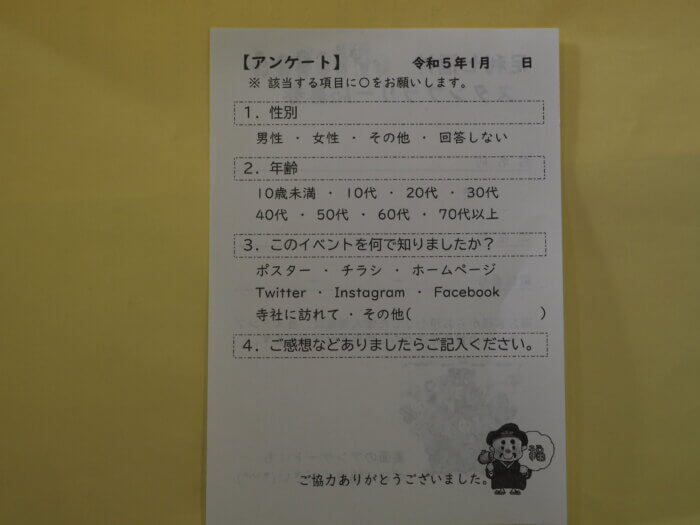 【アンケート】 令和5年1月 日
※ 該当する項目に○をお願いします。
1．性別
男性 ・ 女性 ・ その他 ・ 回答しない
2．年齢
10歳未満 ・ 10代 ・ 20代 ・ 30代
40代 ・ 50代 ・ 60代 ・ 70代以上
3．このイベントを何で知りましたか？
ポスター ・ チラシ ・ ホームページ
Twitter ・ Instagram ・ Facebook
寺社に訪れて ・ その他( )
4．ご感想などありましたらご記入ください。
福
ご協力ありがとうございました。